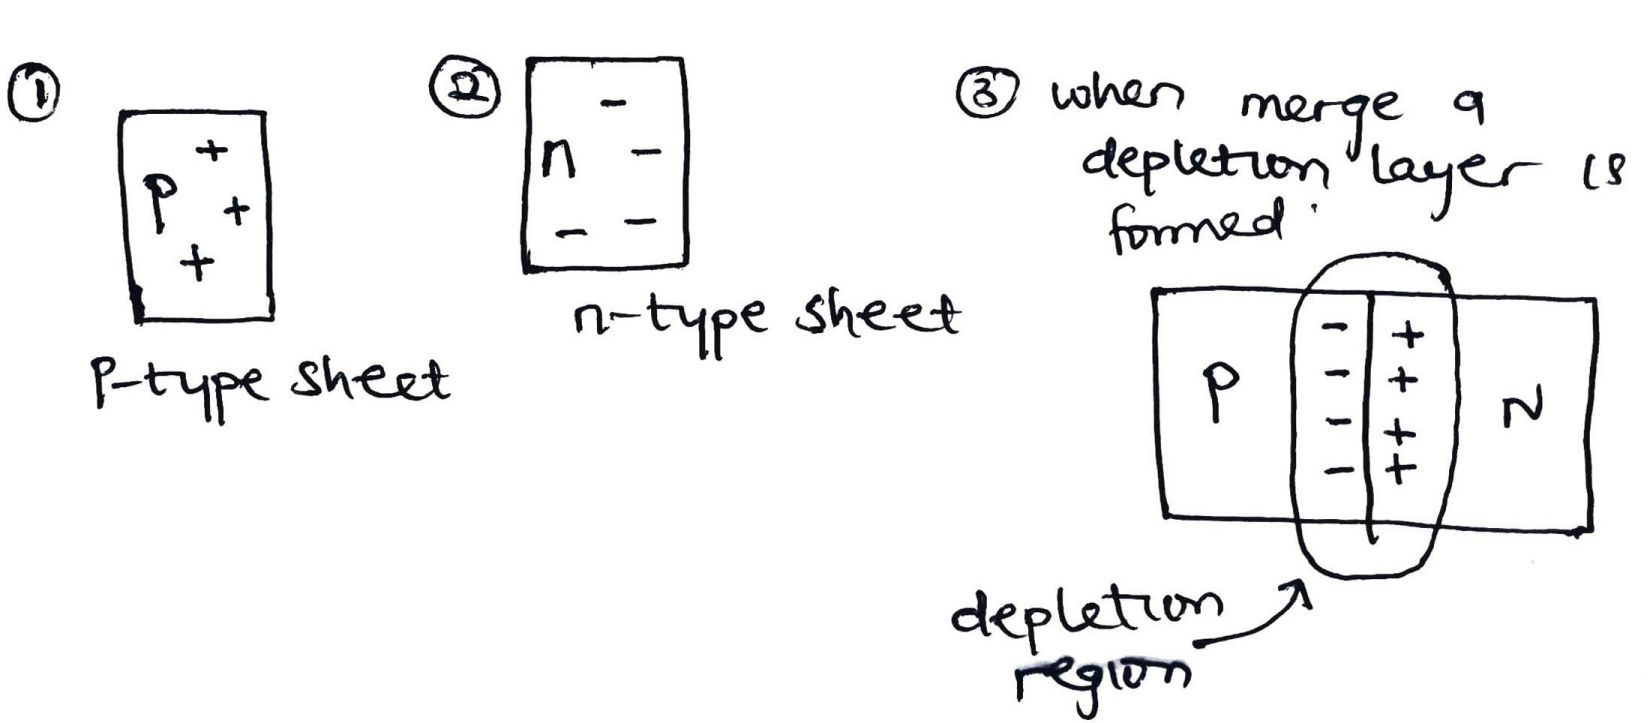 ①
P
+
+
+
P-type sheet
②
n
-
-
-
-
n-type sheet
③ when merge a
depletion layer is
formed.
P
N
- +
- +
- +
- +
depletion
region